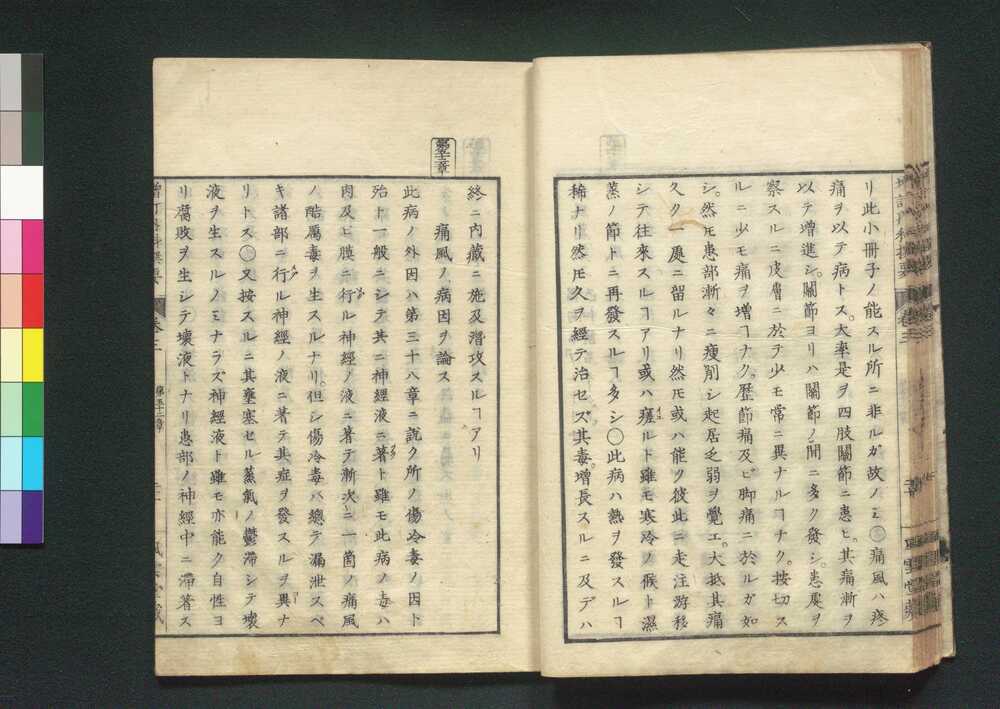 リ此小冊子ノ能スル所ニ非ルガ故ノミ〇痛風ハ疼
痛ヲ以テ病トス。大率是ヲ四肢關節ニ患ヒ。其痛漸ヲ
以テ增進シ。關節ヨリハ關節ノ間ニ多ク發シ。患處ヲ
察スルニ皮膚ニ於テ少モ常ニ異ナルヿナク。按切ス
ルニ少モ痛ヲ增ヿナク。歷節痛及ビ脚痛ニ於ルガ如
シ。然𪜈患部漸々ニ瘦削シ起居乏弱ヲ覺エ。大抵其痛
久ク一處ニ留ルナリ然𪜈或ハ能ク彼此ニ走注游移
シテ往來スルヿアリ或ハ瘥ルト雖モ寒冷ノ候ト濕
蒸ノ節トニ再發スルヿ多シ〇此病ハ熱ヲ發スルヿ
稀ナリ然𪜈久ヲ經テ治セズ其毒。增長スルニ及デハ
終ニ内藏ニ施及潛攻スルヿアリ
第五十二章
痛風ノ病因ヲ論ス
此病ノ外因ハ第三十八章ニ說ク所ノ傷冷毒ノ因ト
殆ト一般ニシテ共ニ神經液ニ著ト雖モ此病ノ毒ハ
肉及ビ膜ニ行ル神經ノ液ニ著テ漸次ニ一箇ノ痛風
ノ酷厲毒ヲ生スルナリ。但シ傷冷毒ハ總テ漏泄スベ
キ諸部ニ行ル神經ノ液ニ著テ其症ヲ發スルヲ異ナ
リトス〇又按スルニ其壅塞セル蒸氣ノ鬱滯シテ壞
液ヲ生スルノミナラズ神經液ト雖モ亦能ク自性ヨ
リ腐敗ヲ生シテ壞液トナリ患部ノ神經中ニ滯著ス
卷三
第五十二章